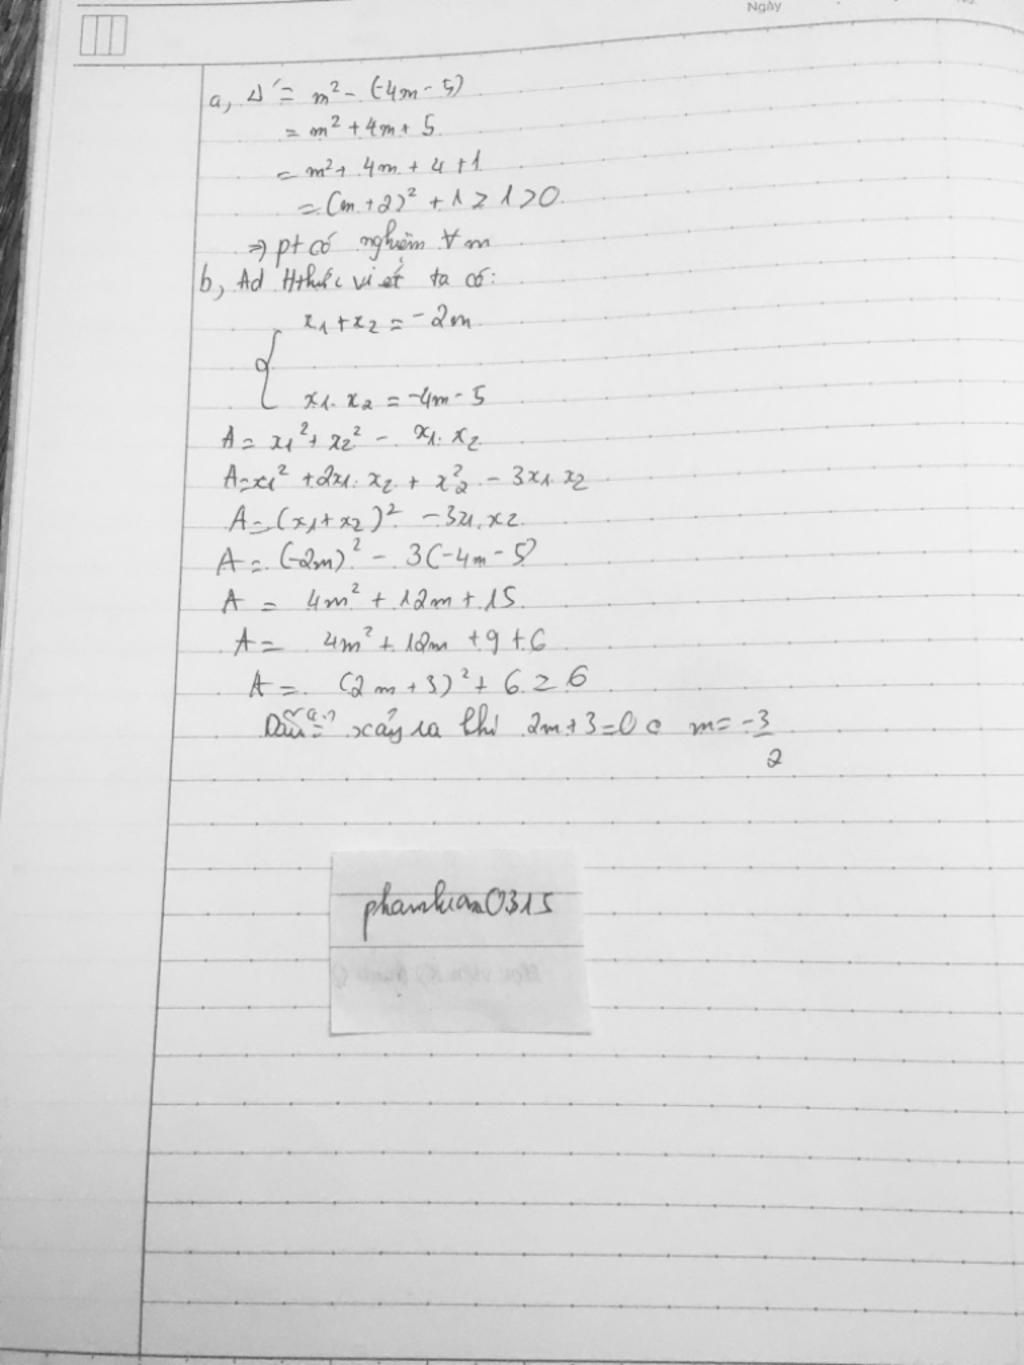 Ngày
a, Δ' = m² - (-4m - 5)
= m² + 4m + 5
= m² + 4m + 4 + 1
= (m + 2)² + 1 ≥ 1 > 0
⇒ pt có nghiệm ∀ m
b, Ad Hthức viét ta có:
{ x₁ + x₂ = -2m
x₁. x₂ = -4m - 5
A = x₁² + x₂² - x₁. x₂
A = x₁² + 2x₁. x₂ + x₂² - 3x₁. x₂
A = (x₁ + x₂)² - 3x₁. x₂
A = (-2m)² - 3(-4m - 5)
A = 4m² + 12m + 15
A = 4m² + 12m + 9 + 6
A = (2m + 3)² + 6 ≥ 6
Dấu "=" xảy ra khi 2m + 3 = 0 m = -3/2